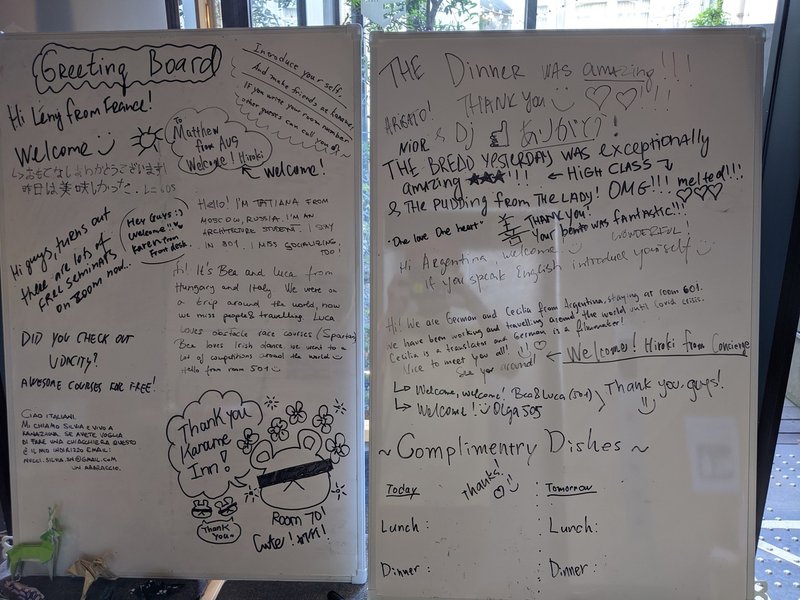 Greeting Board
Introduce your self.
And make friends at kaname.
If you write your room number
other guests can call you :)
Hi Leny from France!
To
Matthew
from Aus
Welcome! Hiroki
Welcome
← Welcome!
↳ おもてなしありがとうございます!
昨日は美味しかった.
Hey Guys :)
Welcome!!
Karen from
Front desk.
HELLO! I'M TATIANA FROM
MOSCOW, RUSSIA. I'M AN
ARCHITECTURE STUDENT. I STAY
IN 801. I MISS SOCIALIZING,
TOO!
Hi guys, turns out
there are lots of
FREE seminars
on zoom now..
Hi! It's Bea and Luca from
Hungary and Italy. We were on
a trip around the world, now
we miss people & travelling. Luca
loves obstacle race courses (Spartan)
Bea loves Irish dance we went to a
lot of competitions around the world
Hello from room 501
DID YOU CHECK OUT
UDACITY?
AWESOME COURSES FOR FREE!
CIAO ITALIANI.
MI CHIAMO SILVIA E VIVO A
KANAZAWA. SE AVETE VOGLIA
DI FARE UNA CHIACCHIERA QUESTO
È IL MIO INDIRIZZO EMAIL:
UN ABBRACCIO.
Thank you
Kaname
Inn!
Thank
you
Room 701
Cute!
THE Dinner WAS amazing!!!
THANK YOU
ARIGATO!
NIOR & Dj ありがとう!
THE BREAD YESTERDAY WAS exceptionally
amazing ★★★!!! ← HIGH CLASS
& THE PUDDING FROM THE LADY! OMG!!! melted!!!
"One love One heart" THANK YOU!
Your bento was fantastic!!!
WONDERFUL!
Hi Argentina, welcome
if you speak English introduce yourself
Hi! We are German and Cecilia from Argentina, staying at room 601.
We have been working and travelling around the world until Covid crisis.
Cecilia is a translator and German is a filmmaker!
Nice to meet you all!
See you around!
← Welcome! Hiroki from Concierge
↳ Welcome, welcome! Bea & Luca (501)
↳ Welcome! Olga 505
Thank you, guys!
~ Complimentry Dishes ~
Thanks!
Today
Tomorrow
Lunch :
Lunch :
Dinner :
Dinner :